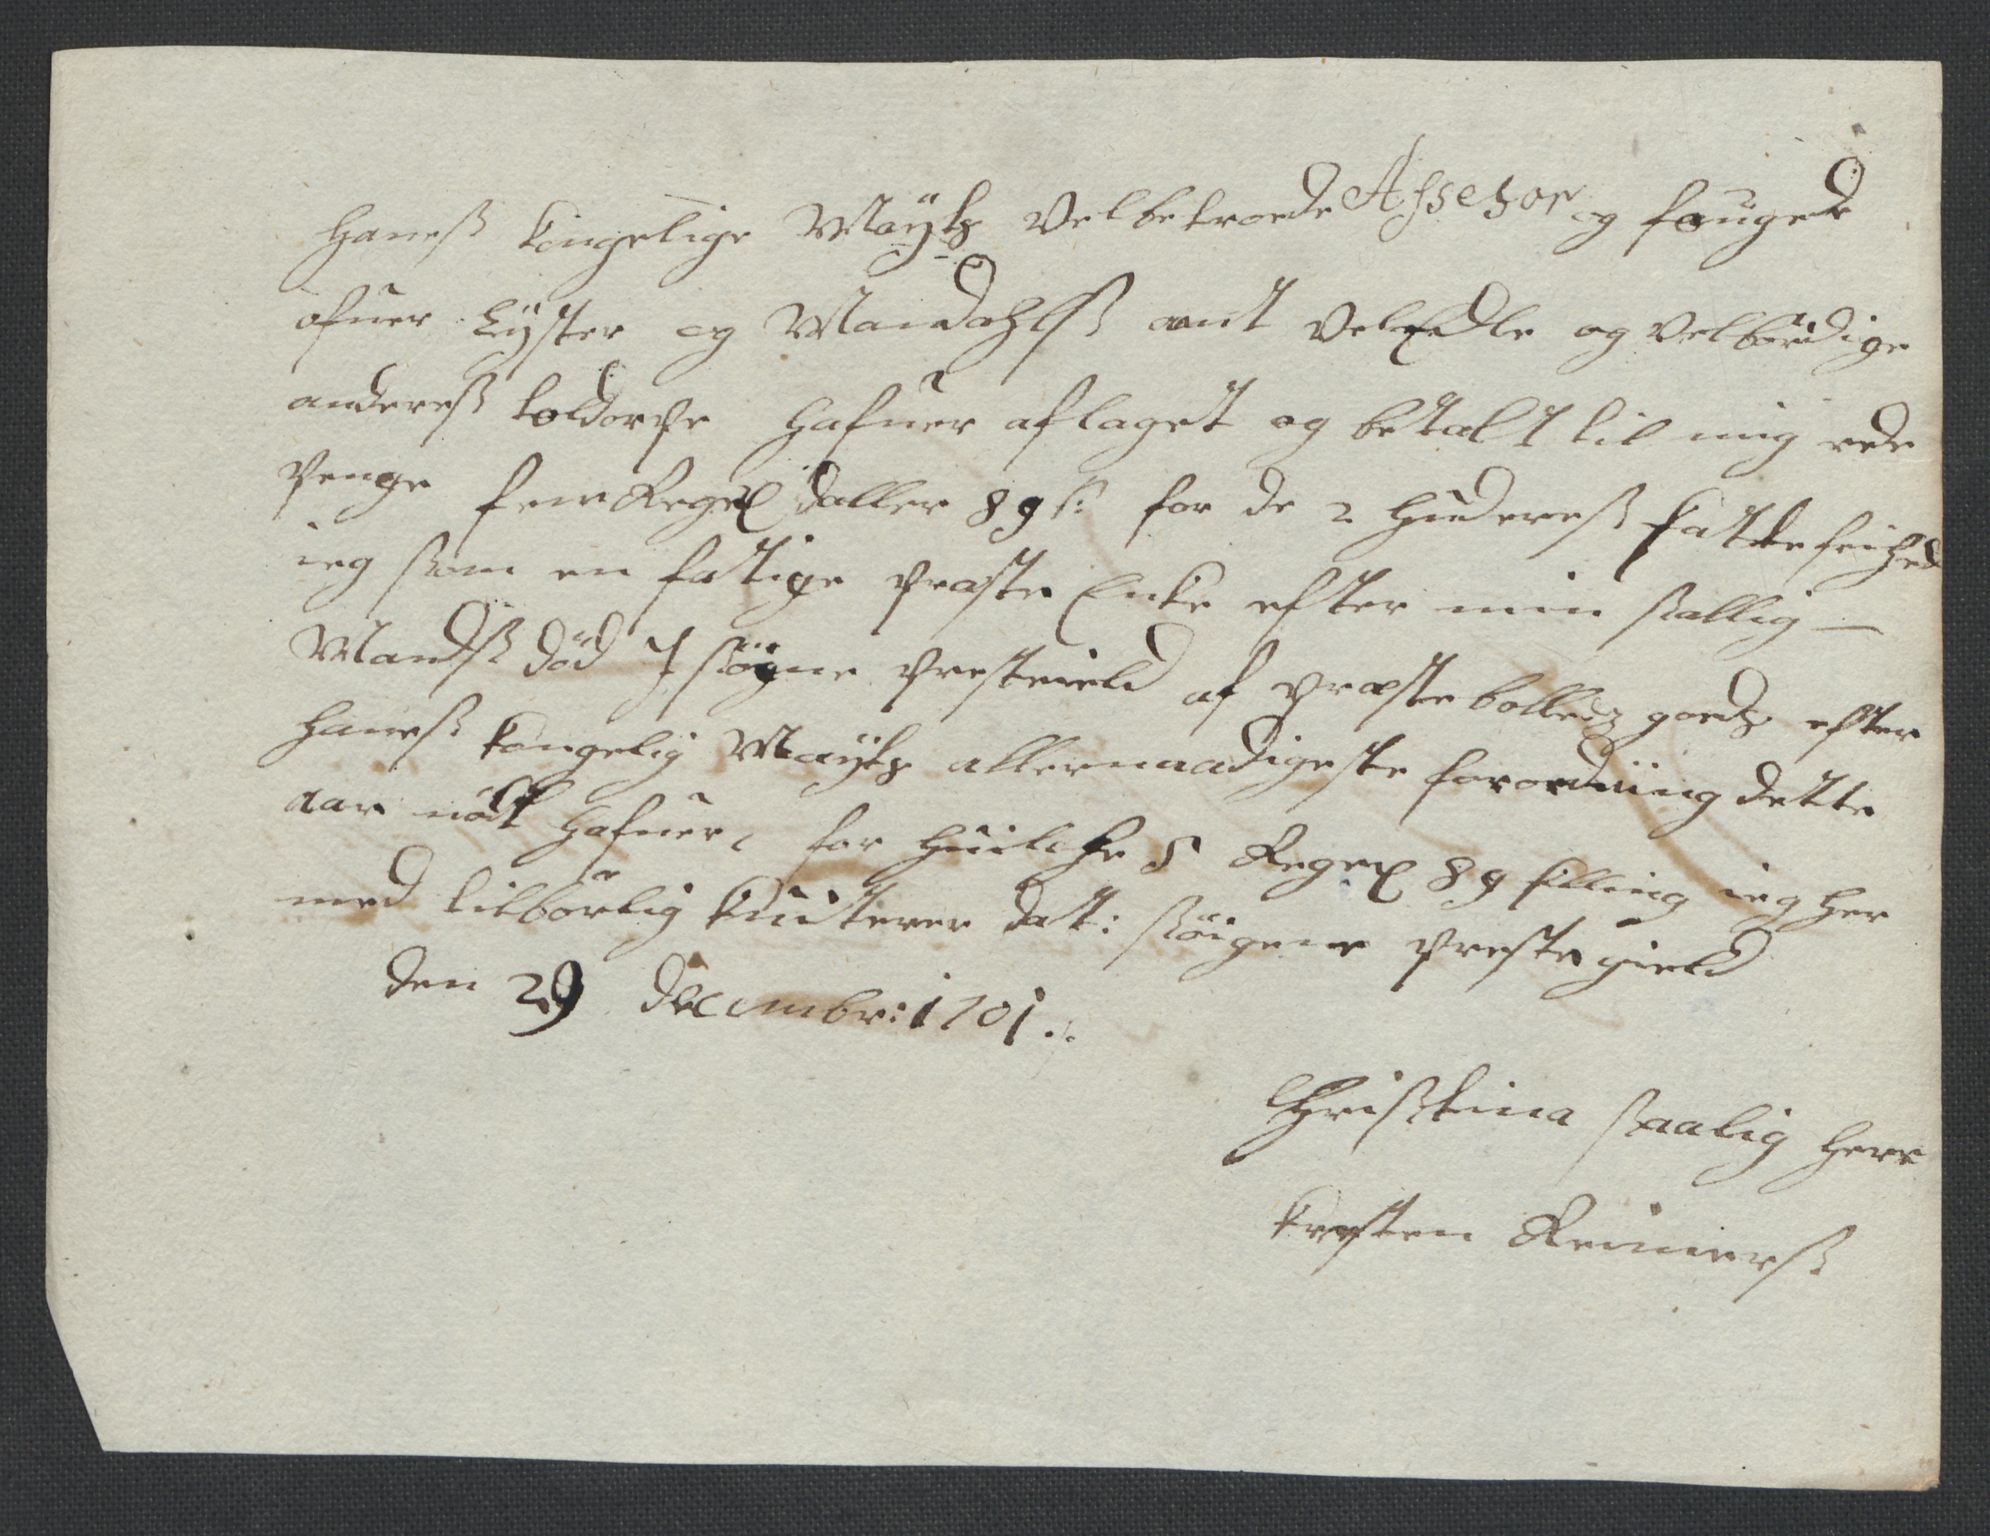 Haneß kongelige Maÿtz Velbetroede Assesor og fouged
ofuer Lÿster og Mandahlß amt Velædle og velbördige
andereß toldorph hafuer aflaget og betalt til mig rede
Penge fem Regx daller 89 s: for de 2 huder eß
ieg som en fatige Præste Encke efter min sallig
Mandß död J Sögne Prestegield af Præste bolledz godz efter
Haneß kongelig Maÿtz allernaadigeste forordning dette
aar nödt hafuer, for huilche 5 Regx 89 skilling ieg her
med tilbörlig quiterer dat: Söigene Preste gield
den 29 decembr: 1701 ..
Christina Saalig Herr
kresten Reimerß